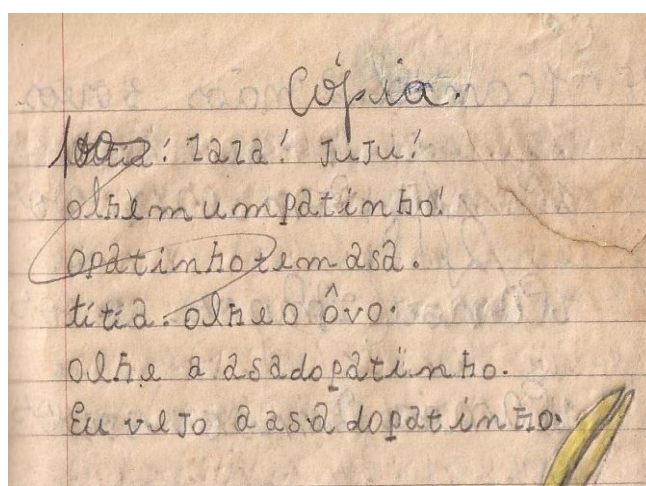 Cópia.
Titia! Zazá! Juju!
olhem um patinho!
o patinho tem asa.
titia. olhe o ôvo.
olhe a asa do patinho.
Eu vejo a asa do patinho.